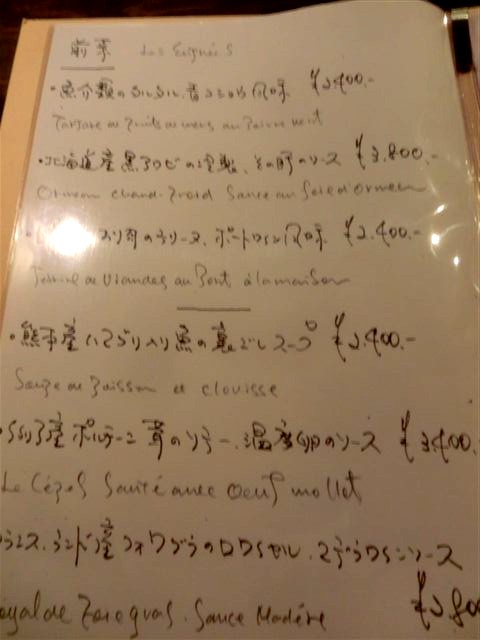 前菜 Les
・魚介類のタルタル、青コショウ風味 ¥2,400.-
Tartare de Fruits de mers au Poivre vert
・北海道産黒アワビの冷製、その肝のソース ¥3,800.-
Ormeau chaud-froid Sauce au Foie d'ormeau
入り のテリーヌ、ポートワイン風味 ¥2,400.-
Terrine de Viandes au Port à la maison
・熊本産ハマグリ入り魚の裏ごしスープ ¥2,400.-
Soupe de Poisson et clovisse
産ポルチーニ茸のソテー、温度卵のソース ¥3,400.
Le Cèpes Sauté avec Oeuf mollet
ランス、ランド産フォワグラのロワイヤル、マデラワインソース
oyal de Foie gras. Sauce Madère ¥2,800